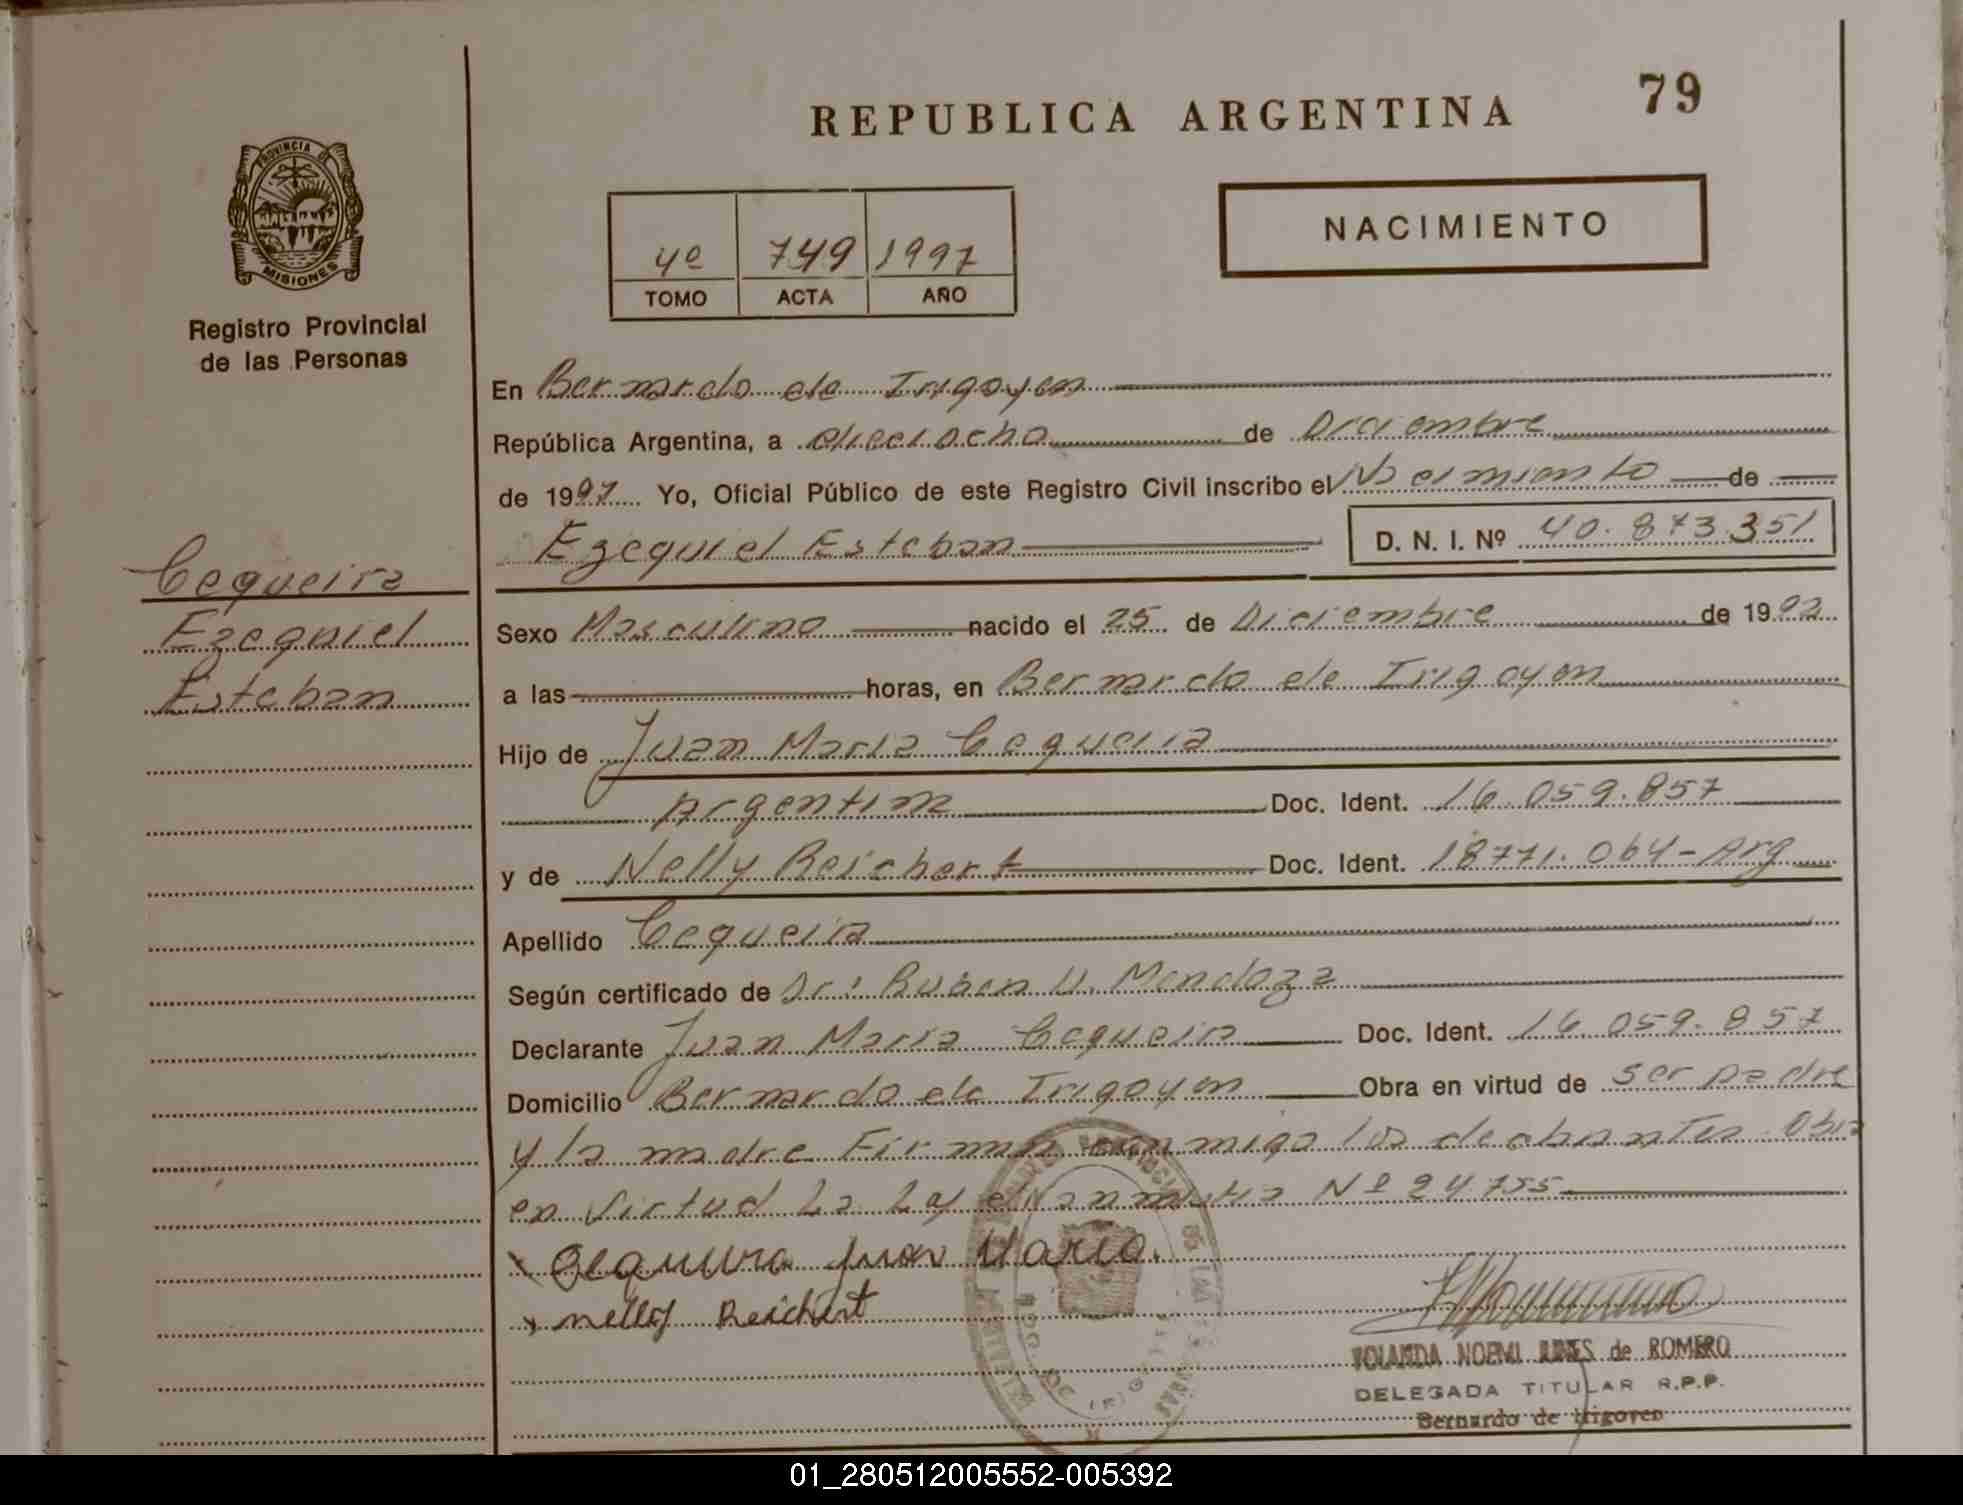 REPUBLICA ARGENTINA
79
PROVINCIA DE
MISIONES
Registro Provincial
de las Personas
4º 749 1997
TOMO ACTA AÑO
NACIMIENTO
En Bernardo de Irigoyen
República Argentina, a dieciocho de Diciembre
de 1997 Yo, Oficial Público de este Registro Civil inscribo el Nacimiento de
Ezequiel Esteban D. N. I. Nº 40.873.351
Cequeira
Ezequiel
Esteban
Sexo Masculino nacido el 25 de Diciembre de 1992
a las horas, en Bernardo de Irigoyen
Hijo de Juan Maria Cequeira
Argentina Doc. Ident. 16.059.857
y de Nelly Reichert Doc. Ident. 18771.064-Arg
Apellido Cequeira
Según certificado de Dr: Ruben U. Mendoza
Declarante Juan Maria Cequeira Doc. Ident. 16.059.857
Domicilio Bernardo de Irigoyen Obra en virtud de ser padre
y la madre Firman conmigo los declarantes Obra
en virtud La Ley de amnistia Nº 24.755
x Cequeira Juan Maria.
x Nelly Reichert
YOLANDA NOEMI de ROMERO
DELEGADA TITULAR R.P.P.
Bernardo de Irigoyen
01_280512005552-005392